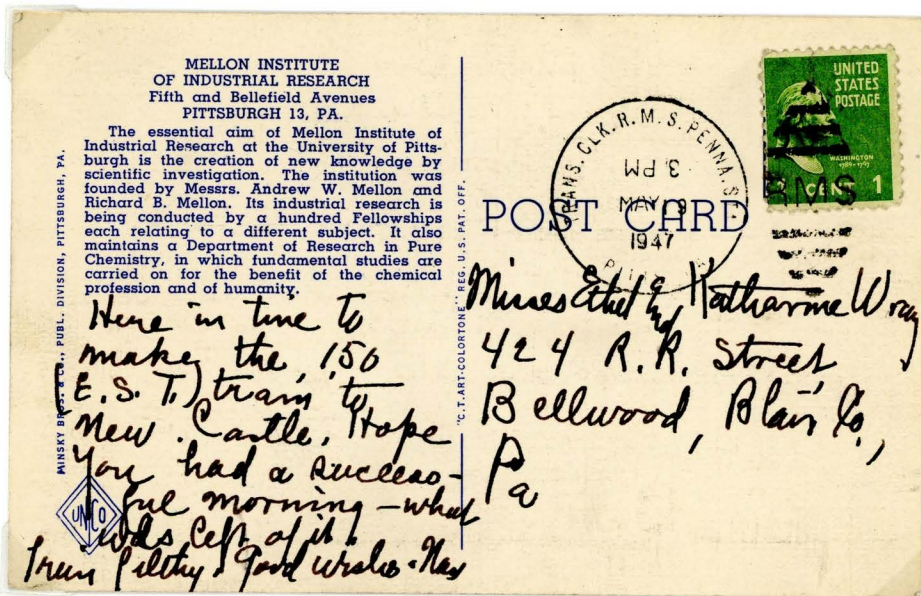 MELLON INSTITUTE
OF INDUSTRIAL RESEARCH
Fifth and Bellefield Avenues
PITTSBURGH 13, PA.
The essential aim of Mellon Institute of
Industrial Research at the University of Pitts-
burgh is the creation of new knowledge by
scientific investigation. The institution was
founded by Messrs. Andrew W. Mellon and
Richard B. Mellon. Its industrial research is
being conducted by a hundred Fellowships
each relating to a different subject. It also
maintains a Department of Research in Pure
Chemistry, in which fundamental studies are
carried on for the benefit of the chemical
profession and of humanity.
Here in time to
make the 1.50
(E.S.T.) train to
New Castle. Hope
you had a success-
ful morning - what
was left of it.
Train filthy. Good wishes - 
MINSKY BROS. & CO., PUBL. DIVISION, PITTSBURGH, PA.
UMCO
"C.T. ART-COLORTONE" REG. U.S. PAT. OFF.
POST CARD
TRANS. CLK. R.M.S. PENNA. S
3 PM
MAY 19
1947
UNITED
STATES
POSTAGE
WASHINGTON
1789-1797
CENT 1
RMS
Misses Ethel and Katharine Wray
424 R.R. Street
Bellwood, Blair Co.,
Pa